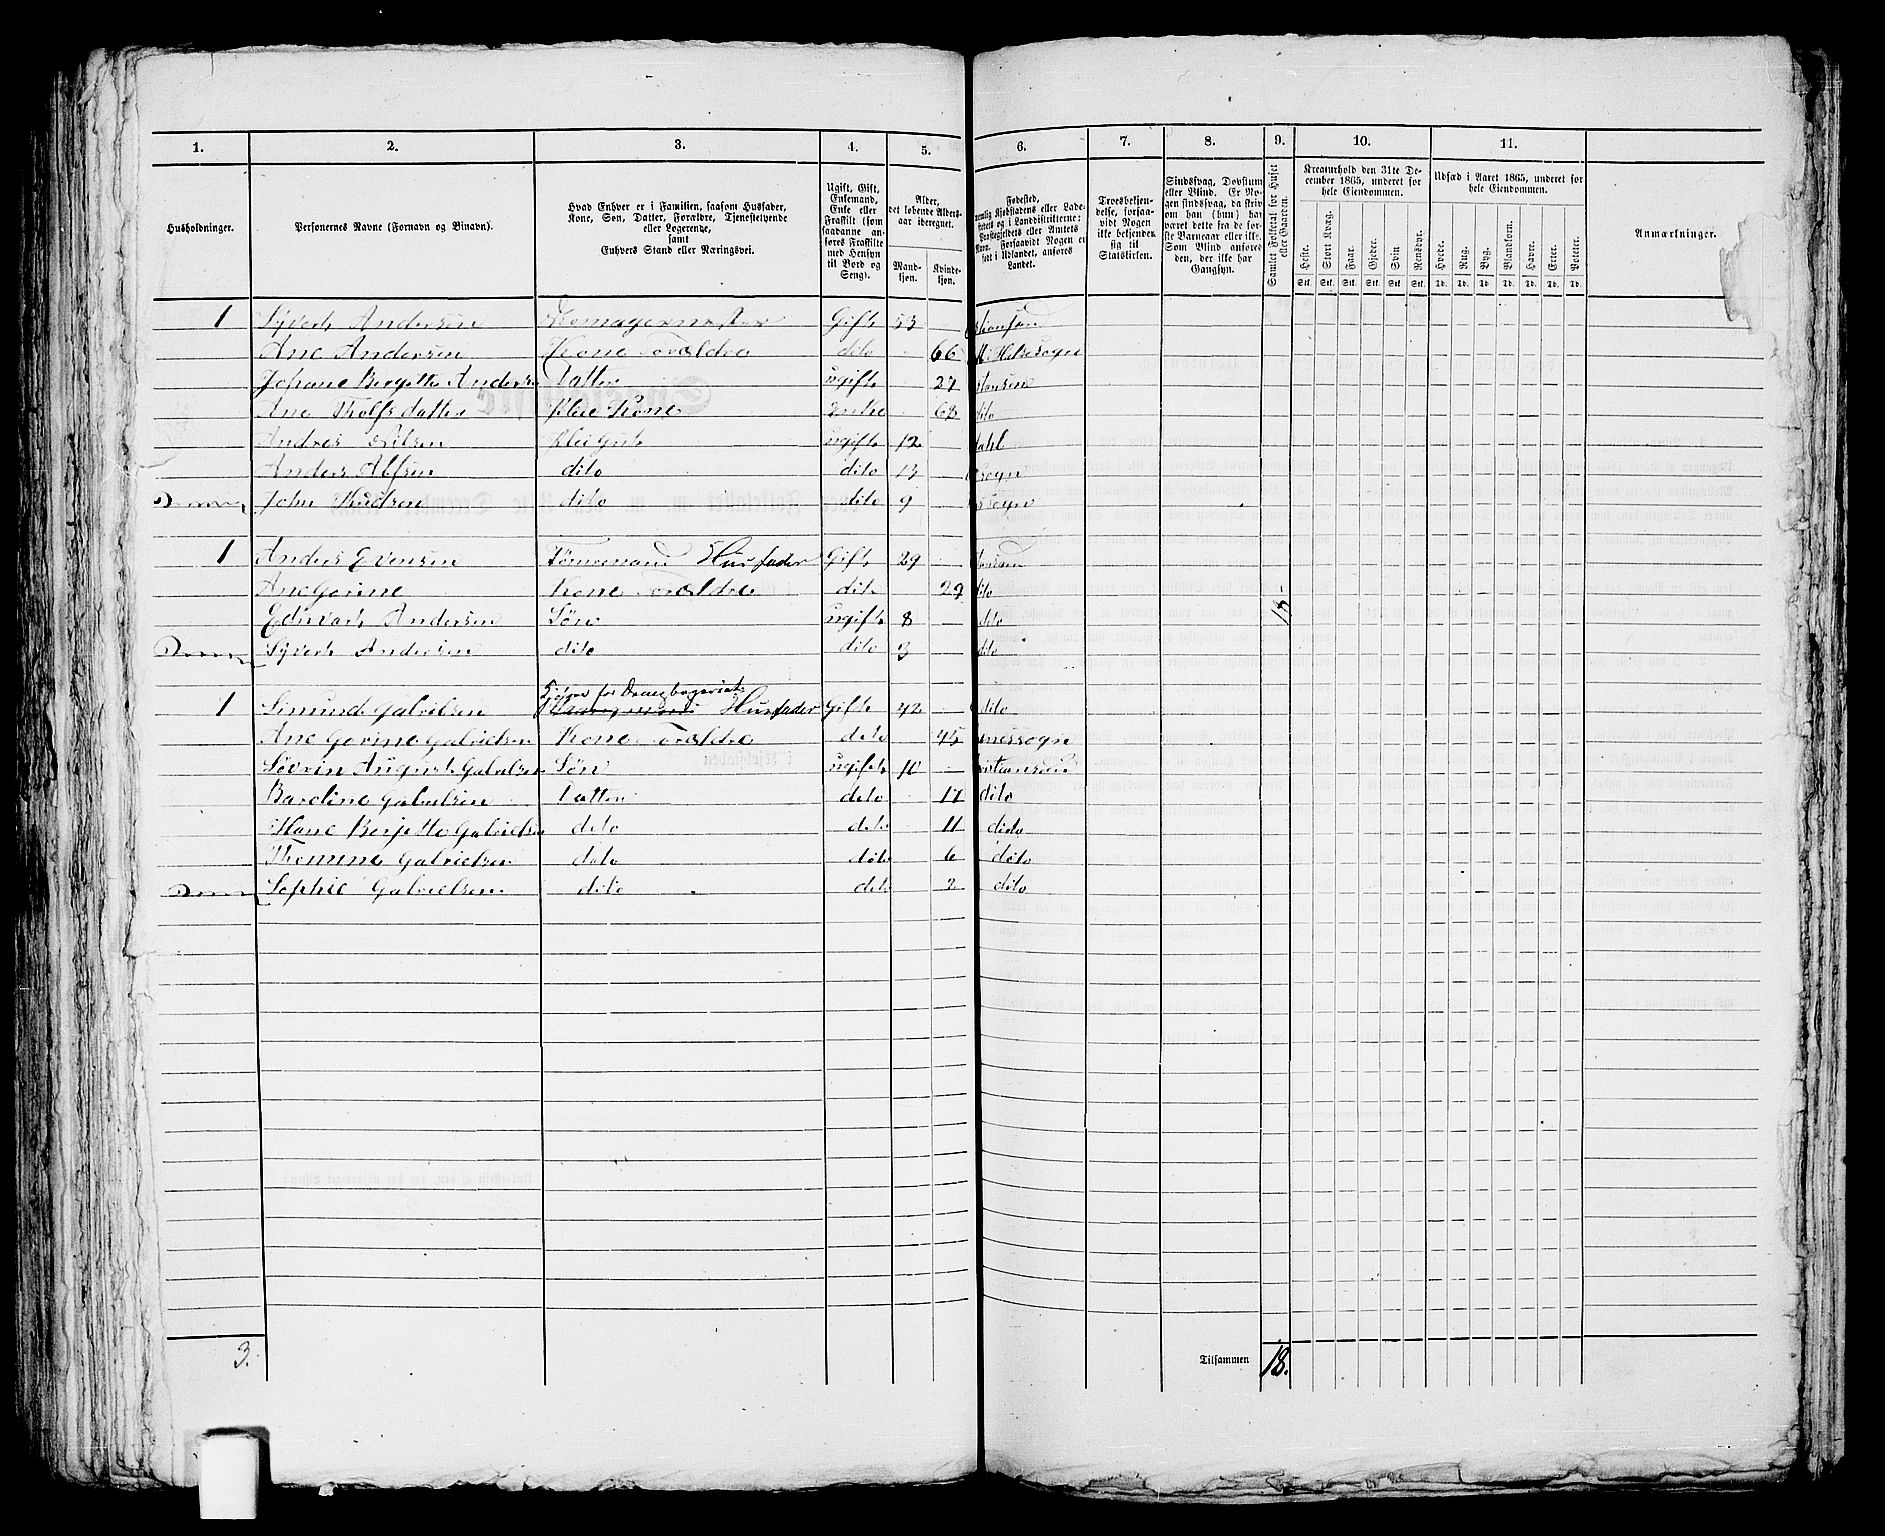 1. 2. 3. 4. 5. 6. 7. 8. 9. 10. 11.
Husholdninger.
Personernes Navne (Fornavn og Binavn).
Hvad Enhver er i Familien, saasom Husfader,
Kone, Søn, Datter, Forældre, Tjenestetyende
eller Logerende,
samt
Enhvers Stand eller Næringsvei.
Ugift, Gift,
Enkemand,
Enke eller
Fraskilt (som
saadanne an-
føres Fraskilte
med Hensyn
til Bord og
Seng).
Alder,
det løbende Alders-
aar iberegnet.
Mand-
kjøn.
Kvinde-
kjøn.
Fødested,
nemlig Kjøbstadens eller Lade-
stedets og i Landdistrikterne:
Præstegjeldets eller Amtets
Navn. Forsaavidt Nogen er
født i Udlandet, anføres
Landet.
Troesbekjen-
delse, forsaa-
vidt Nogen
ikke bekjender
sig til
Statskirken.
Sindssvag, Døvstum
eller Blind. Er No-
gen sindssvag, da skriv
om han (hun) har
været dette fra de før-
ste Barneaar eller ikke.
Som Blind anføres
den, der ikke har
Gangsyn.
Samlet Folketal for Huset
eller Gaarden.
Kreaturhold den 31te De-
cember 1865, underet for
hele Eiendommen.
Heste. Stort Kvæg. Faar. Gjeder. Svin Rensdyr.
Stk. Stk. Stk. Stk. Stk. Stk.
Udsæd i Aaret 1865, underet for
hele Eiendommen.
Hvede. Rug. Byg. Blandkorn. Havre. Erter. Poteter.
Td. Td. Td. Td. Td. Td. Td.
Anmærkninger.
1 Syvert Andersen Gift 53
Ane Andersen Kone Forældre dito 66
Johane Bergitte Anders Datter ugift 27
Ane Rolfsdatter Kone Enke 68 dito
Andres ugift 12 dahl
Anders Alfsen dito dito 13 sogn
John Knudsen dito dito 9 sogn
1 Anders Evensen Tømermand Husfader Gift 29
Ane Gorine Kone Forældre dito 29 dito
Edvart Andersen Søn ugift 8 dito
Syvert Andersen dito dito 3 dito
1 Simund Gabrielsen Husfader Gift 42 dito
Ane Gorine Gabrielsen Kone Forældre dito 45 nessogn
Søvrin August Gabrielsen Søn ugift 10 istiansand
Baroline Gabrielsen Datter dito 17 dito
Hane Berjette Gabrielsen dito dito 11 dito
Thomine Gabrielsen dito dito 6 dito
Sophie Gabrielsen dito dito 2 dito
3. Tilsammen 18.